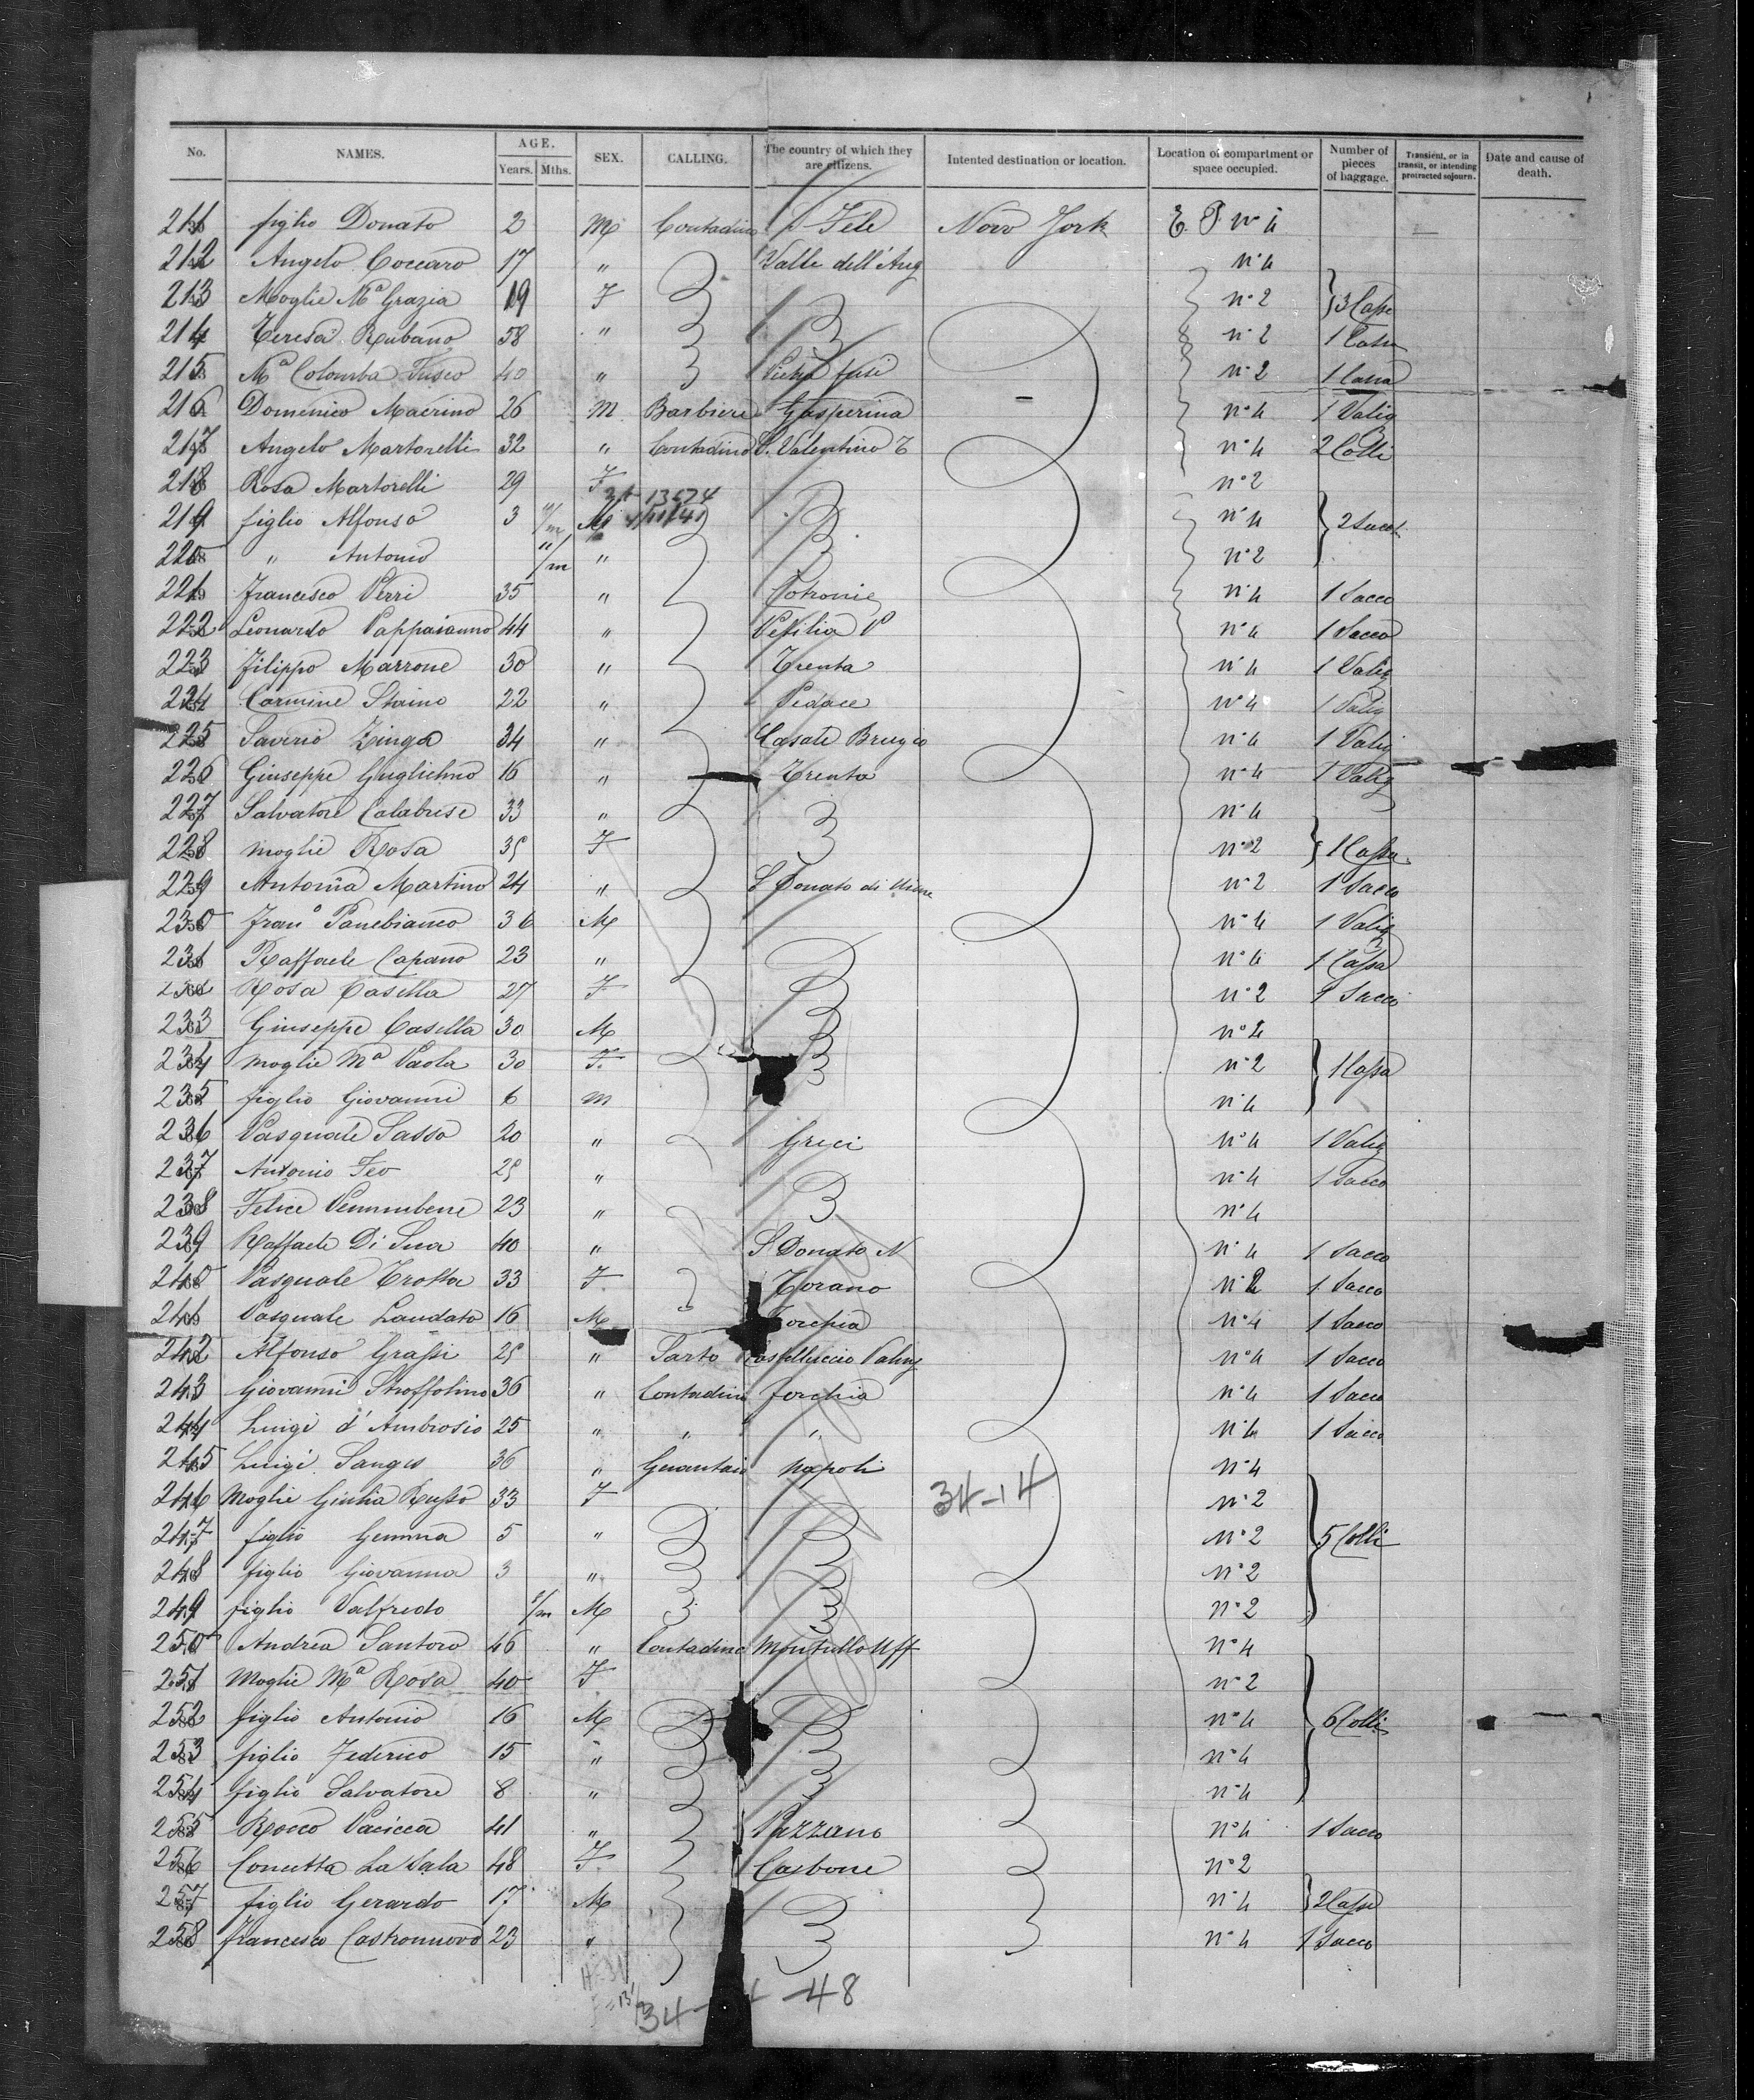 No. NAMES. AGE. Years. Mths. SEX. CALLING. The country of which they are citizens. Intented destination or location. Location of compartment or space occupied. Number of pieces of baggage. Transient, or in transit, or intending protracted sojourn. Date and cause of death.
211 figlio Donato 2 M Contadino S. Fele Novo York E. P. n° 4
212 Angelo Coccaro 17 " Valle dell'Ang n° 4
213 Moglie Mª Grazia 19 F n° 2 3 Casse
214 Teresa Rubano 58 " n° 2 1 Cassa
215 Mª Colomba Fusco 40 " Pietra fusi n° 2 1 Cassa
216 Domenico Macrino 26 M Barbiere Gasperina n° 4 1 Valig
217 Angelo Martorelli 32 " Contadino S. Valentino T n° 4 2 Colli
218 Rosa Martorelli 29 F n° 2
219 figlio Alfonso 3 M n° 4 2 Sacchi
220 " Antonio 11/m " n° 2
221 Francesco Verri 35 " Cotronie n° 4 1 Sacco
222 Leonardo Pappaianno 44 " Petilia P n° 4 1 Sacco
223 Filippo Marrone 30 " Trenta n° 4 1 Valig
224 Carmine Staino 22 " Pedace n° 4 1 Valig
225 Saverio Zinga 34 " Casale Bruzio n° 4 1 Valig
226 Giuseppe Guglielmo 16 " Trenta n° 4 1 Valig
227 Salvatore Calabrese 33 " n° 4
228 moglie Rosa 35 F n° 2 1 Cassa
229 Antonia Martino 24 " S Donato di n° 2 1 Sacco
230 Fran° Panebianco 36 M n° 4 1 Valig
231 Raffaele Capano 23 " n° 4 1 Cassa
232 Rosa Casella 27 F n° 2 1 Sacco
233 Giuseppe Casella 30 M n° 4
234 moglie Mª Paola 30 F. n° 2 1 Cassa
235 figlio Giovanni 6 m n° 4
236 Pasquale Sasso 20 " Greci n° 4 1 Valig
237 Antonio Feo 25 " n° 4 1 Sacco
238 Felice 23 " n° 4
239 Raffaele Di 40 " S Donato N n° 4 1 Sacco
240 Pasquale Trotta 33 F Torano n° 2 1 Sacco
241 Pasquale Laudato 16 M Forchia n° 4 1 Sacco
242 Alfonso Grassi 25 " Sarto Castelluccio Valmg n° 4 1 Sacco
243 Giovanni Stroffolino 36 " Contadino Forchia n° 4 1 Sacco
244 Luigi d'Ambrosio 25 " " " n° 4 1 Sacco
245 Luigi Sanges 36 " Guantaio Napoli n° 4
34-14
246 Moglie Giulia Russo 33 F n° 2
247 figlio Gemma 5 " n° 2 5 Colli
248 figlio Giovanna 3 " n° 2
249 figlio Valfredo M n° 2
250 Andrea Santoro 46 " Contadino Montullo Uff n° 4
251 Moglie Mª Rosa 40 F n° 2
252 figlio Antonio 16 M n° 4 6 Colli
253 figlio Federico 15 " n° 4
254 figlio Salvatore 8 " n° 4
255 Rocco Pacicca 41 " Pazzano n° 4 1 Sacco
256 Concetta La Sala 48 F. Carbone n° 2
257 figlio Gerardo 17 M n° 4 2 Casse
258 Francesco Castronuovo 23 " n° 4 1 Sacco
34- -48